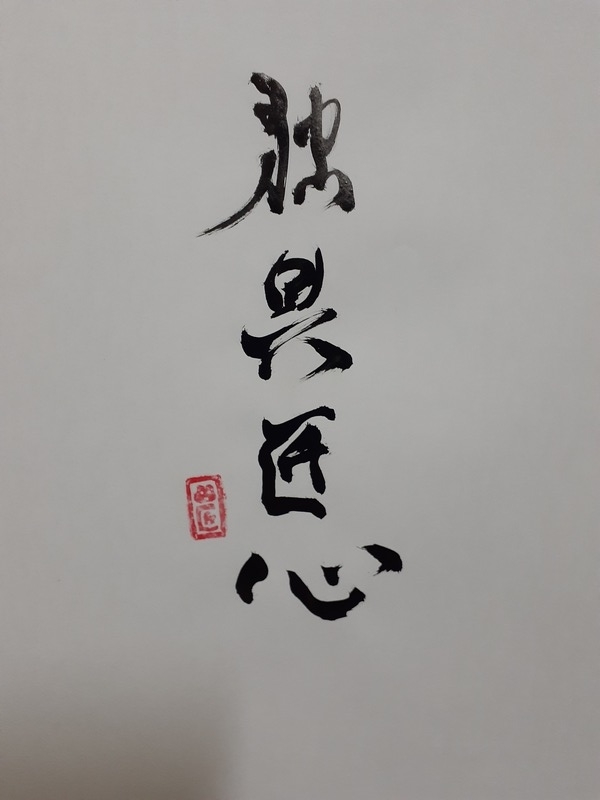 独具匠心